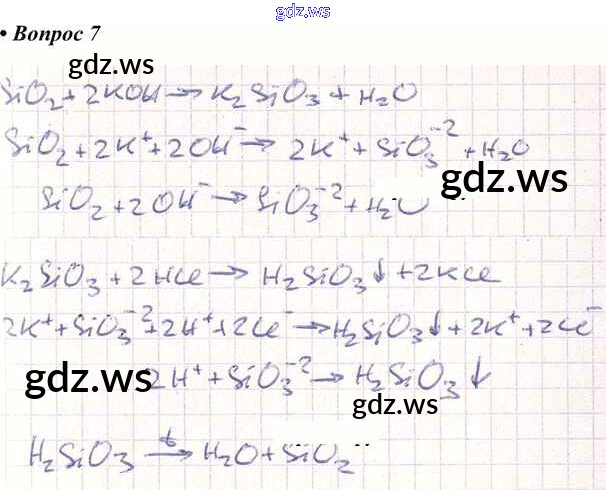 gdz.ws
• Вопрос 7
gdz.ws
SiO₂ + 2KOH → K₂SiO₃ + H₂O
SiO₂ + 2K⁺ + 2OH⁻ → 2K⁺ + SiO₃⁻² + H₂O
gdz.ws
SiO₂ + 2OH⁻ → SiO₃⁻² + H₂O
K₂SiO₃ + 2HCl → H₂SiO₃↓ + 2KCl
2K⁺ + SiO₃⁻² + 2H⁺ + 2Cl⁻ → H₂SiO₃↓ + 2K⁺ + 2Cl⁻
gdz.ws
2H⁺ + SiO₃⁻² → H₂SiO₃↓
gdz.ws
H₂SiO₃ →ᵗ H₂O + SiO₂